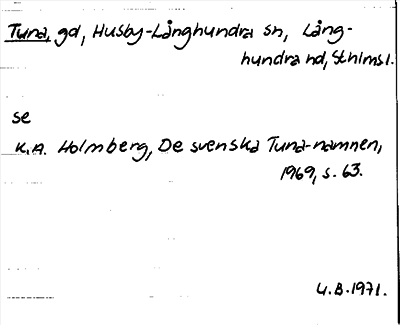 Tuna, gd, Husby-Långhundra sn, Lång-
hundra hd, Sthlms l.
se
K.A. Holmberg, De svenska Tuna-namnen,
1969, s. 63.
U.B. 1971.